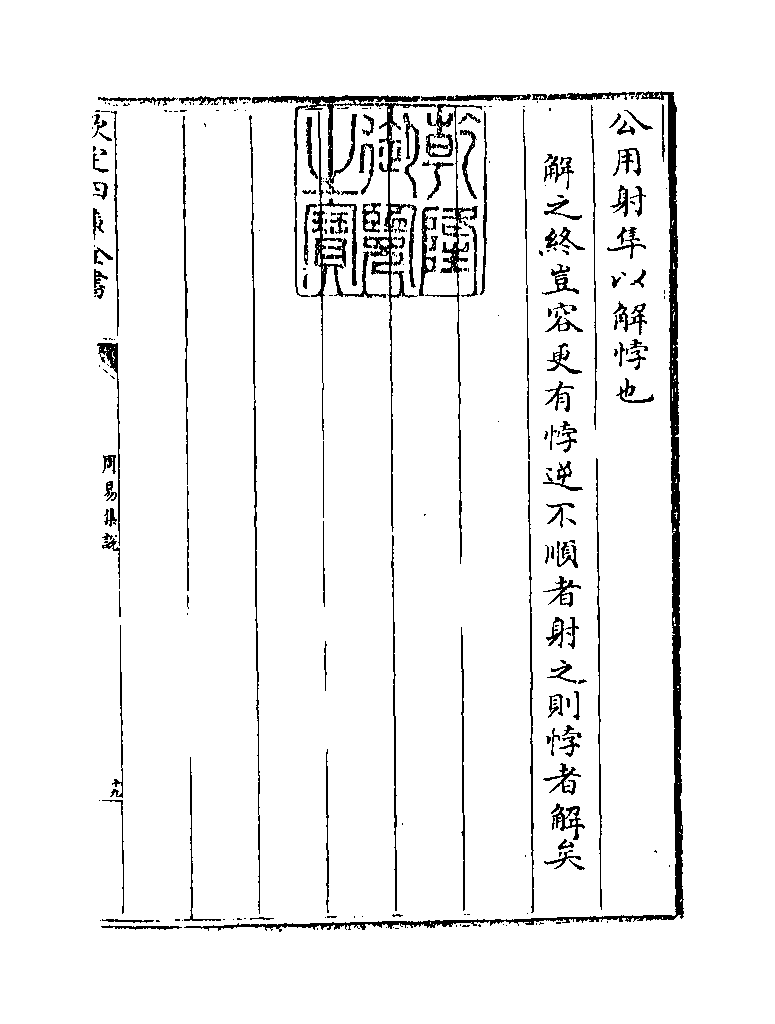 公用射隼以解悖也
解之終豈容更有悖逆不順者射之則悖者解矣
乾隆御覽之寶
欽定四庫全書
周易集説
十九